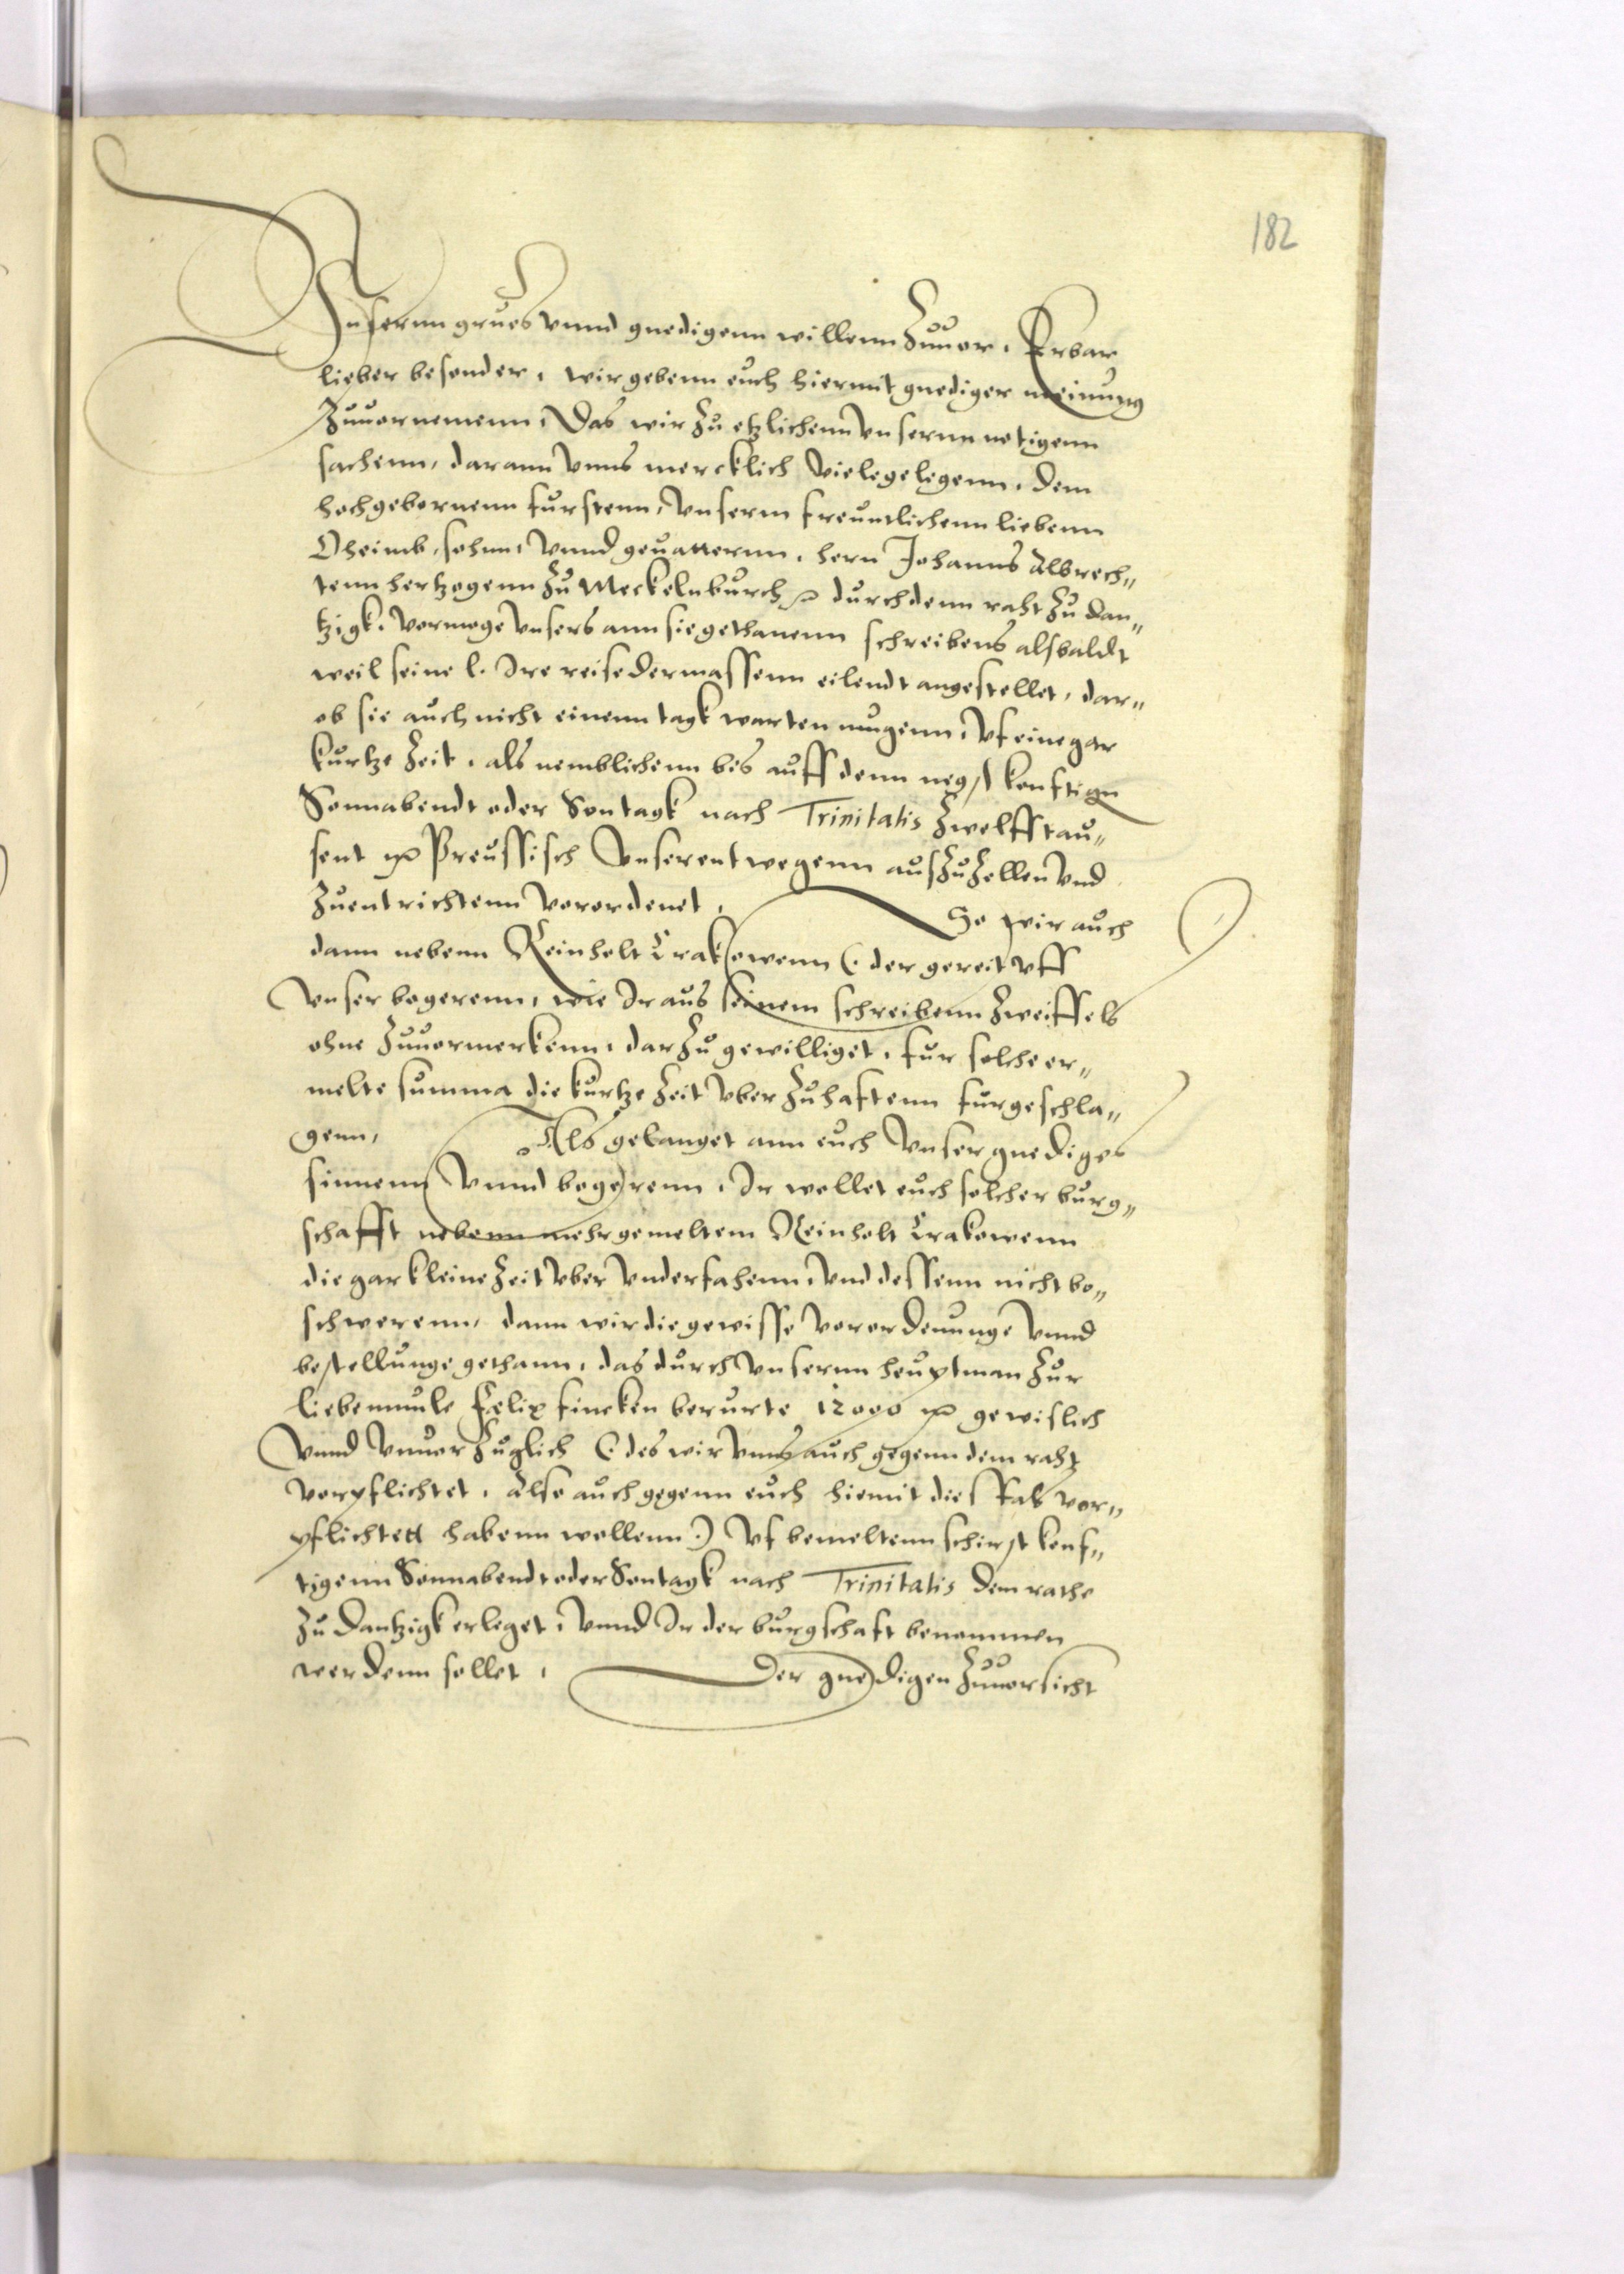 182
Unsernn grues vnnd gnedigenn willenn Zuuor. Erbar
lieber besonder, wir gebenn euch hiermit gnediger meinung
Zuuornemenn, Das wir Zu etzlichenn vnsernn notigenn
sachenn, darann vnns mercklich viele gelegenn, dem
hochgebornenn furstenn, vnserm freuntlichenn liebenn
Oheimb, sohnn, vnnd geuatternn, hern Johanns Albrech„
tenn hertzogenn Zu Meckelnburch durch denn raht Zu Dan„
tzigk, vormoge vnsers ann sie gethanenn schreibens alsbaldt
weil seine l. Ire reise dermassenn eilendt angestellet, dar„
ob sie auch nicht einenn tagk warten mugenn, vf eine gar
kurtze Zeit, als nemblichenn bis auff denn negst konftign
Sonnabendt oder Sontagk nach Trinitatis Zwelfftau„
sent Preussisch vnserentwegenn ausZuZellen vnd
Zuentrichtenn vorordenet, So wir auch
dann nebenn Reinholt Crakowenn (: der gereit vff
vnser begerenn, wie Ir aus seinem schreibenn Zweiffels
ohne Zuuormerkenn, darZu gewilliget, fur solche er„
melte summa die kurtze Zeit vber Zuhaftenn furgeschla„
genn, Als gelanget ann euch vnser gnediges
sinnenn vnnd begerenn, Ir wollet euch solcher burg„
schafft nebenn mehrgemeltem Reinholt Crakowenn
die gar kleine Zeit vber vnderfahenn, vnd dessenn nicht be„
schwerenn, dann wir die gewisse verordenunge vnnd
bestellunge gethann, das durch vnsernn heuptman Zur
liebemuule Felix fincken berurte 12000 gewislich
vnnd vnuorZuglich (: des wir vnns auch gegenn dem raht
vorpflichtet, Also auch gegenn euch hiemit dies fals vor„
pflichtett habenn wollenn :) vf bemeltenn schirst konf„
tigenn Sonnabendt oder Sontagk nach Trinitatis dem rathe
Zu Dantzigk erleget, vnnd Ir der burgschaft benommen
werdenn sollet, Der gnedigen Zuuorsicht